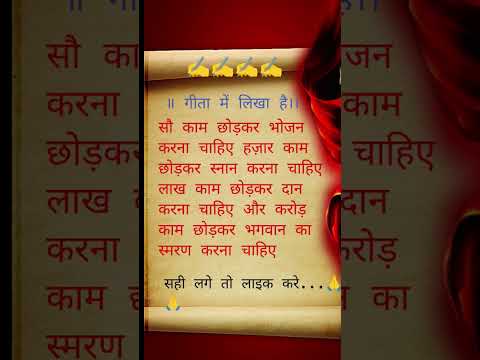 ✍✍✍✍
॥ गीता में लिखा है।।
सौ काम छोड़कर भोजन
करना चाहिए हज़ार काम
छोड़कर स्नान करना चाहिए
लाख काम छोड़कर दान
करना चाहिए और करोड़
काम छोड़कर भगवान का
स्मरण करना चाहिए
सही लगे तो लाइक करे...🙏
🙏